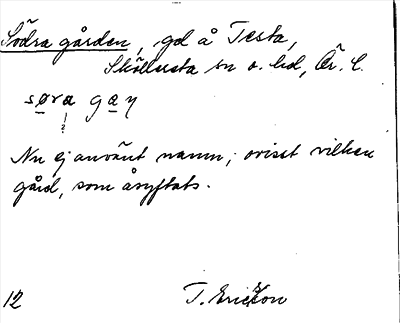 Södra gården, gd å Testa,
Sköllersta sn o. hd, Ör. l.
søra gaɳ
?
Nu ej använt namn; ovisst vilken
gård, som åsyftats.
12 T. Ericsson